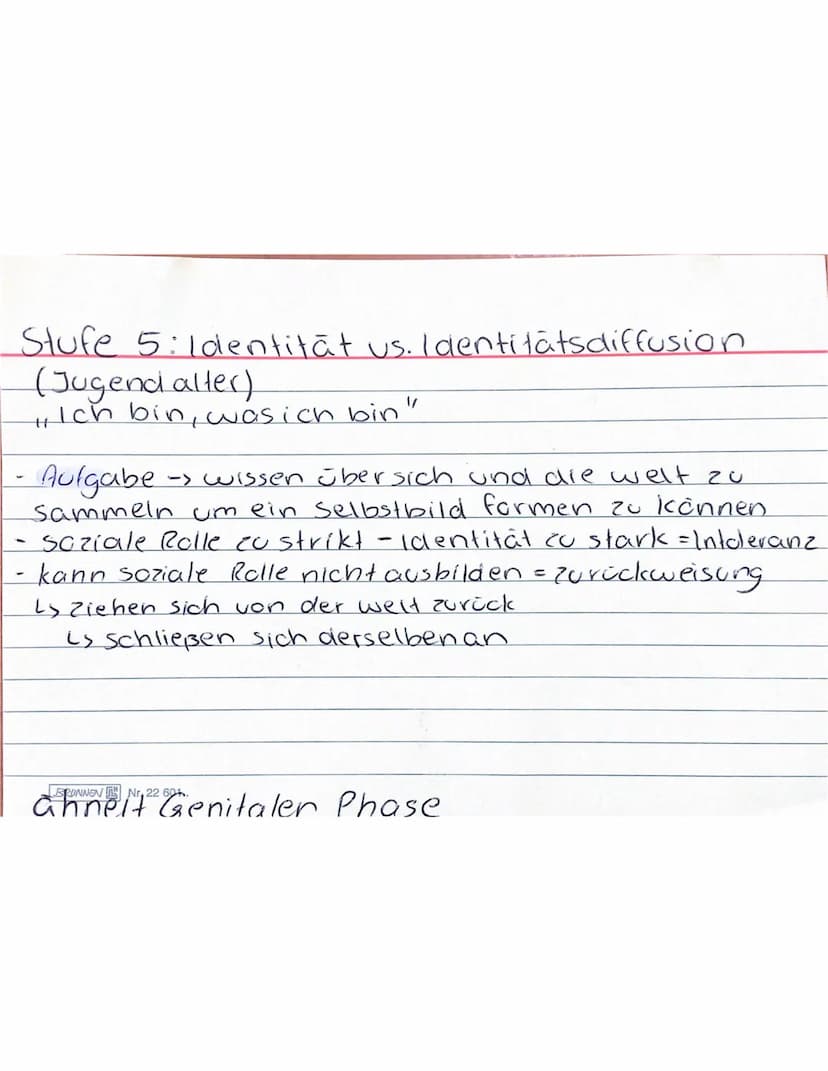 Stufe 5: Identität vs. Identitätsdiffusion
(Jugendalter)
„Ich bin, was ich bin"
- Aufgabe -> wissen über sich und die welt zu
sammeln um ein selbstbild formen zu können
- soziale Rolle zu strikt - Identität zu stark = Intoleranz
- kann soziale Rolle nicht ausbilden = zurückweisung
↳ ziehen sich von der welt zurück
↳ schließen sich derselben an
BRUNNEN Nr. 22 601
ähnelt Genitaler Phase